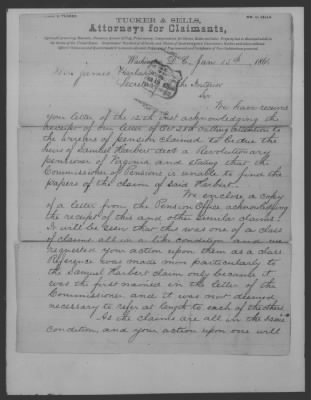 TUCKER & SELLS,
Attorneys for Claimants,
Washington, D.C., Jan 15th 186
Hon James Harlan
Secretary of the Interior
Sir
We have received
your letter of the 12th inst acknowledging the
receipt of our letter of Oct 21st calling attention to
the arrears of pension claimed to be due the
heirs of Samuel Harbert decd a Revolutionary
pensioner of Virginia and stating that the
Commissioner of Pensions is unable to find the
papers of the claim of said Harbert.
We enclose a copy
of a letter from the Pension Office acknowledging
the receipt of this and other similar claims.
It will be seen that this was one of a class
of claims all in a like condition and we
requested your action upon them as a class
Reference was made more particularly to
the Samuel Harbert claim only because it
was the first named in the letter of the
Commissioner and it was not deemed
necessary to refer at length to each of the others
As the claims are all in the same
condition, and your action upon one will